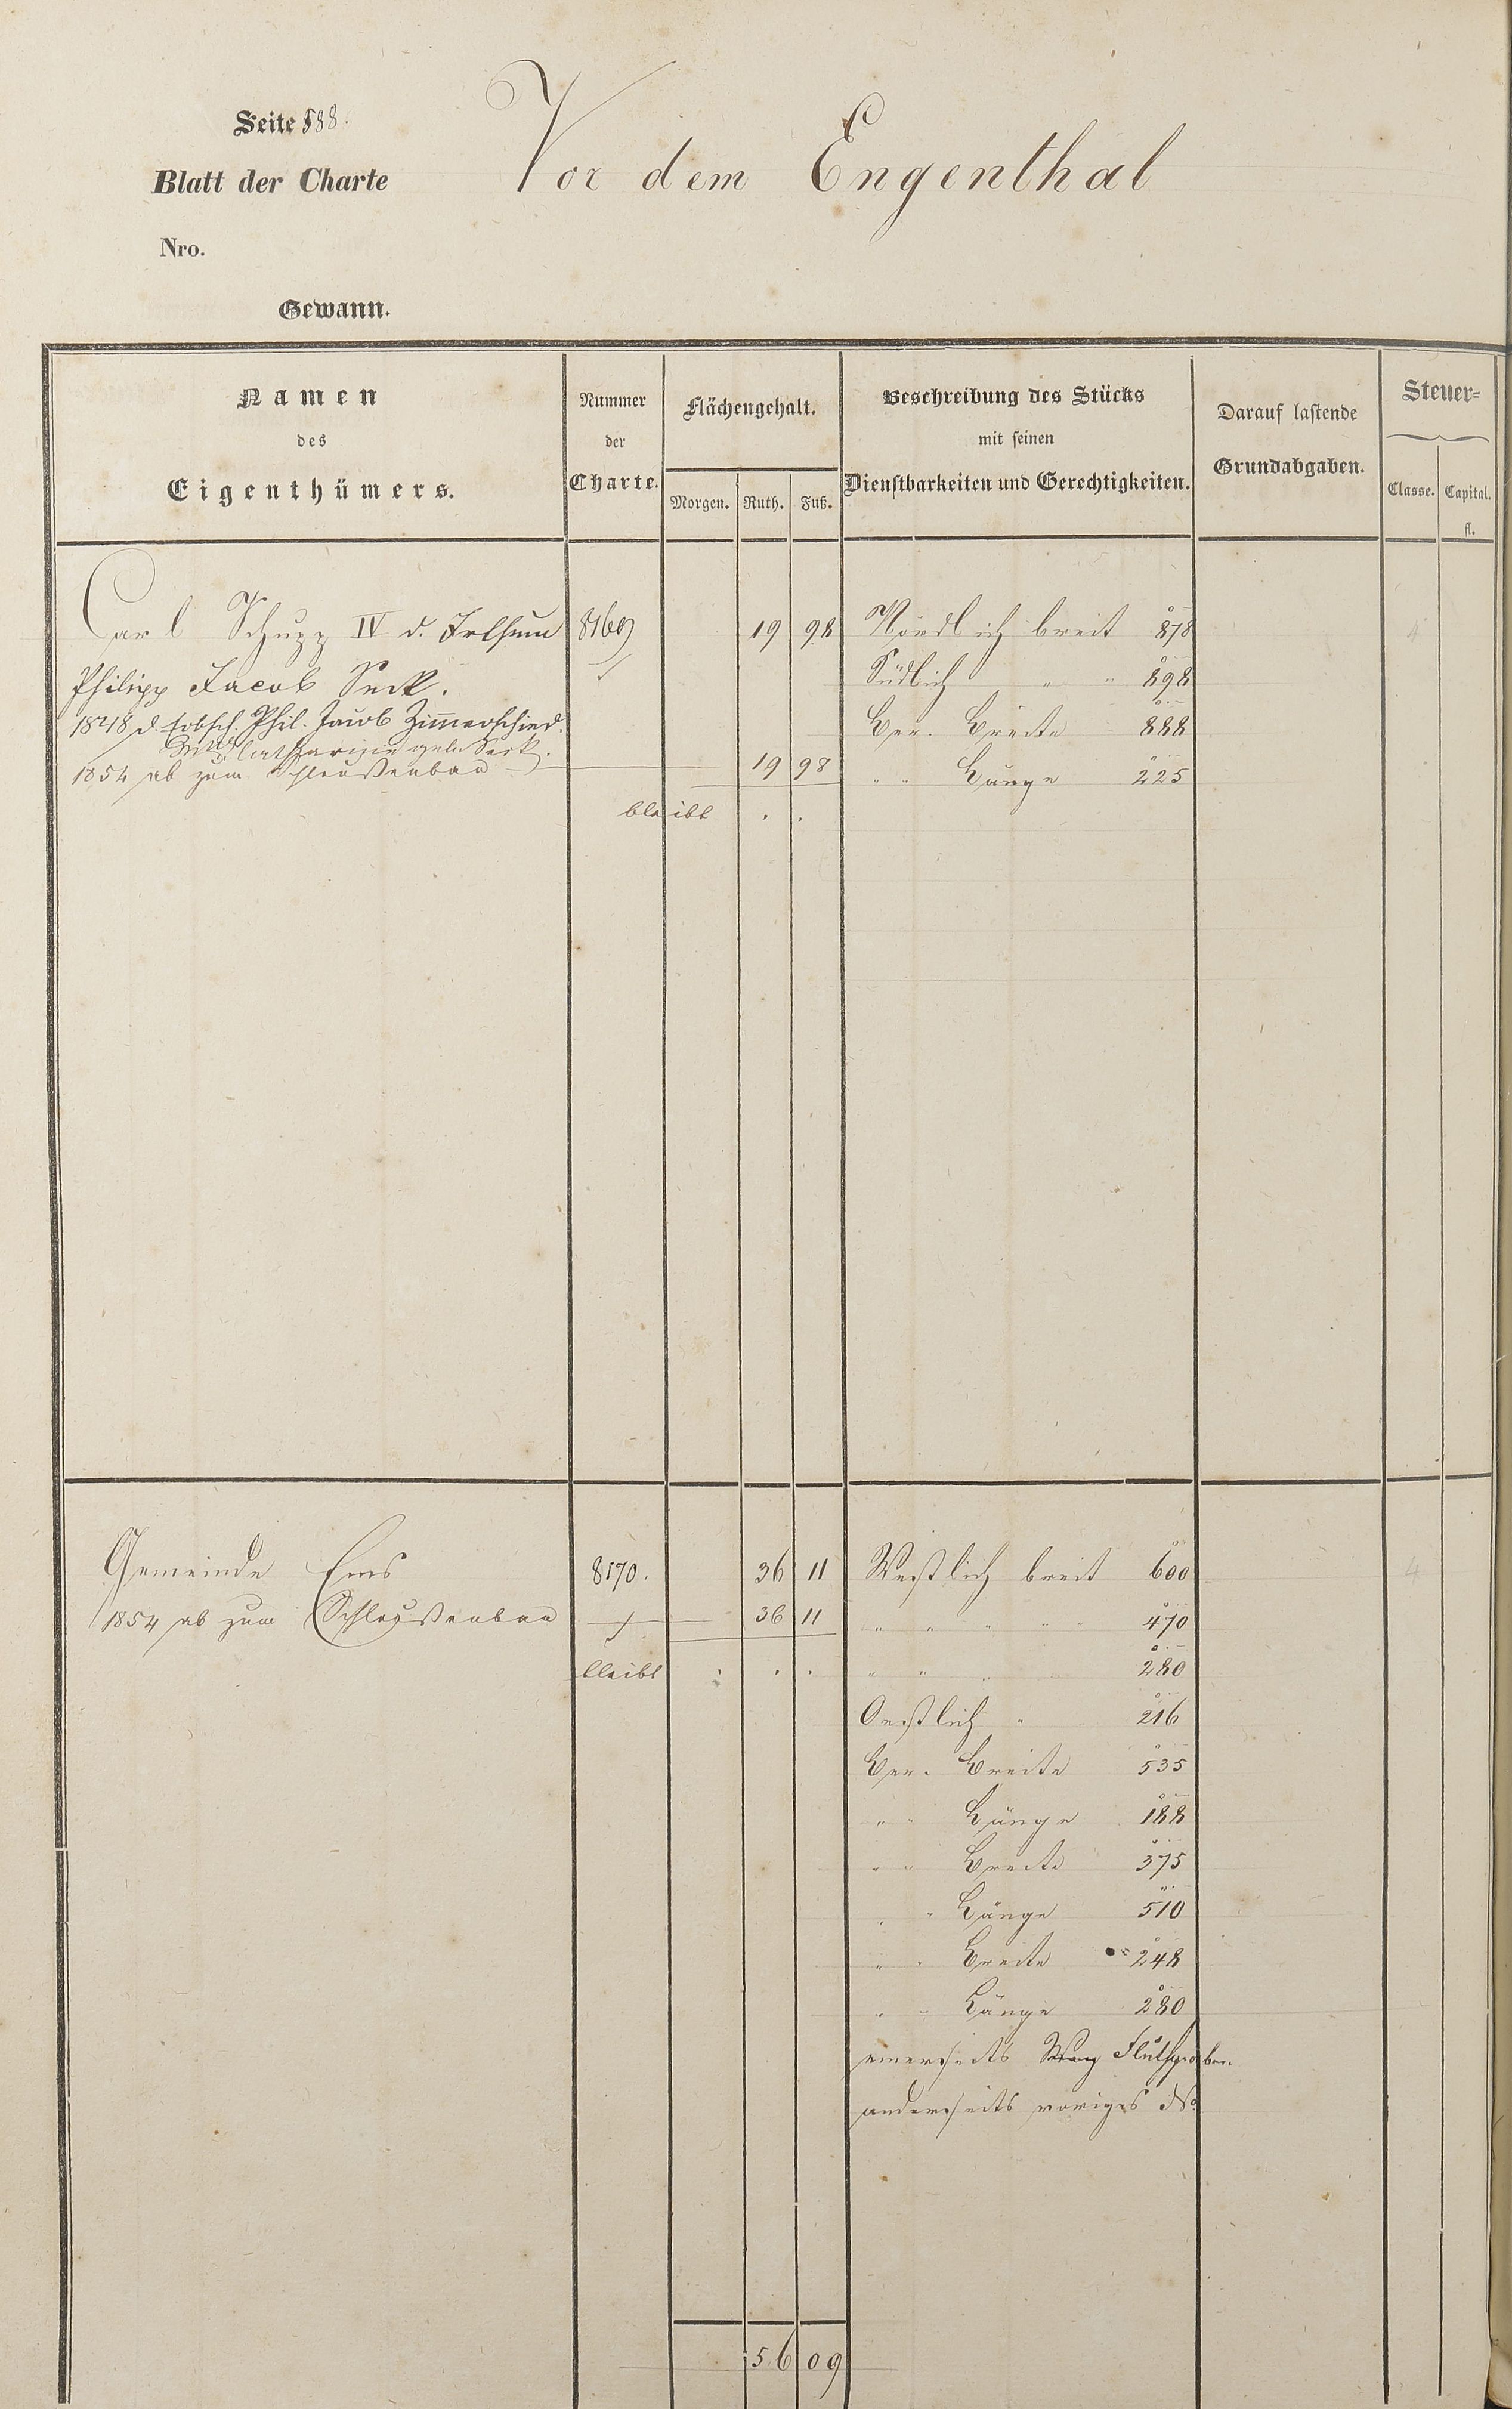 Seite 588.
Blatt der Charte
Nro.
Gewann.
Vor dem Engenthal
Namen
des
Eigenthümers.
Nummer
der
Charte.
Flächengehalt.
Morgen. Ruth. Fuß.
Beschreibung des Stücks
mit seinen
Dienstbarkeiten und Gerechtigkeiten.
Darauf lastende
Grundabgaben.
Steuer=
Classe. Capital.
fl.
Carl Schupp IV d. 8169 19 98 Nördlich breit 878 4
Philipp Jacob Seck. Südlich " " 898
1848 d. Erbsch. Phil. Jacob Zimmerschied. Ver. Breite 888
Catharine geb. Seck.
1854 ab zum Schleußenbau 19 98 " " Länge 225
bleibt . .
Gemeinde Ems 8170. 36 11 Westlich breit 600 4
1854 ab zum Schleußenbau 36 11 " " " " 470
bleibt . . . " " " 280
Oestlich " 216
Ver. Breite 535
" " Länge 188
" " Breite 375
" " Länge 510
" " Breite 248
" " Länge 280
einerseits Weg Fluthgraben.
anderseits voriges No.
56 09